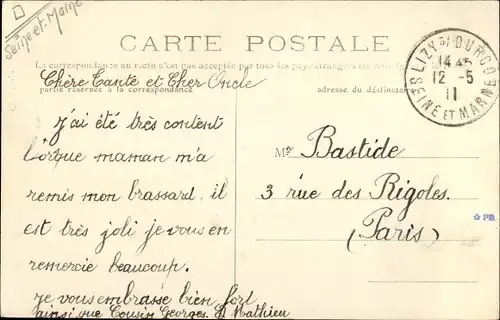 Seine-et-Marne
CARTE POSTALE
La correspondance au recto n'est pas acceptée par tous les pays étrangers
Chère Tante et Cher Oncle
partie réservée à la correspondance
adresse du destinataire
LIZY-S/-OURCQ
14 45
12 -5
11
SEINE ET MARNE
j'ai été très content
lorque maman m'a
remis mon brassard, il
est très joli je vous en
remercie beaucoup.
je vous embrasse bien fort
ainsi que Cousin Georges. Mathieu
Mr Bastide
3 rue des Rigoles.
(Paris)
PB